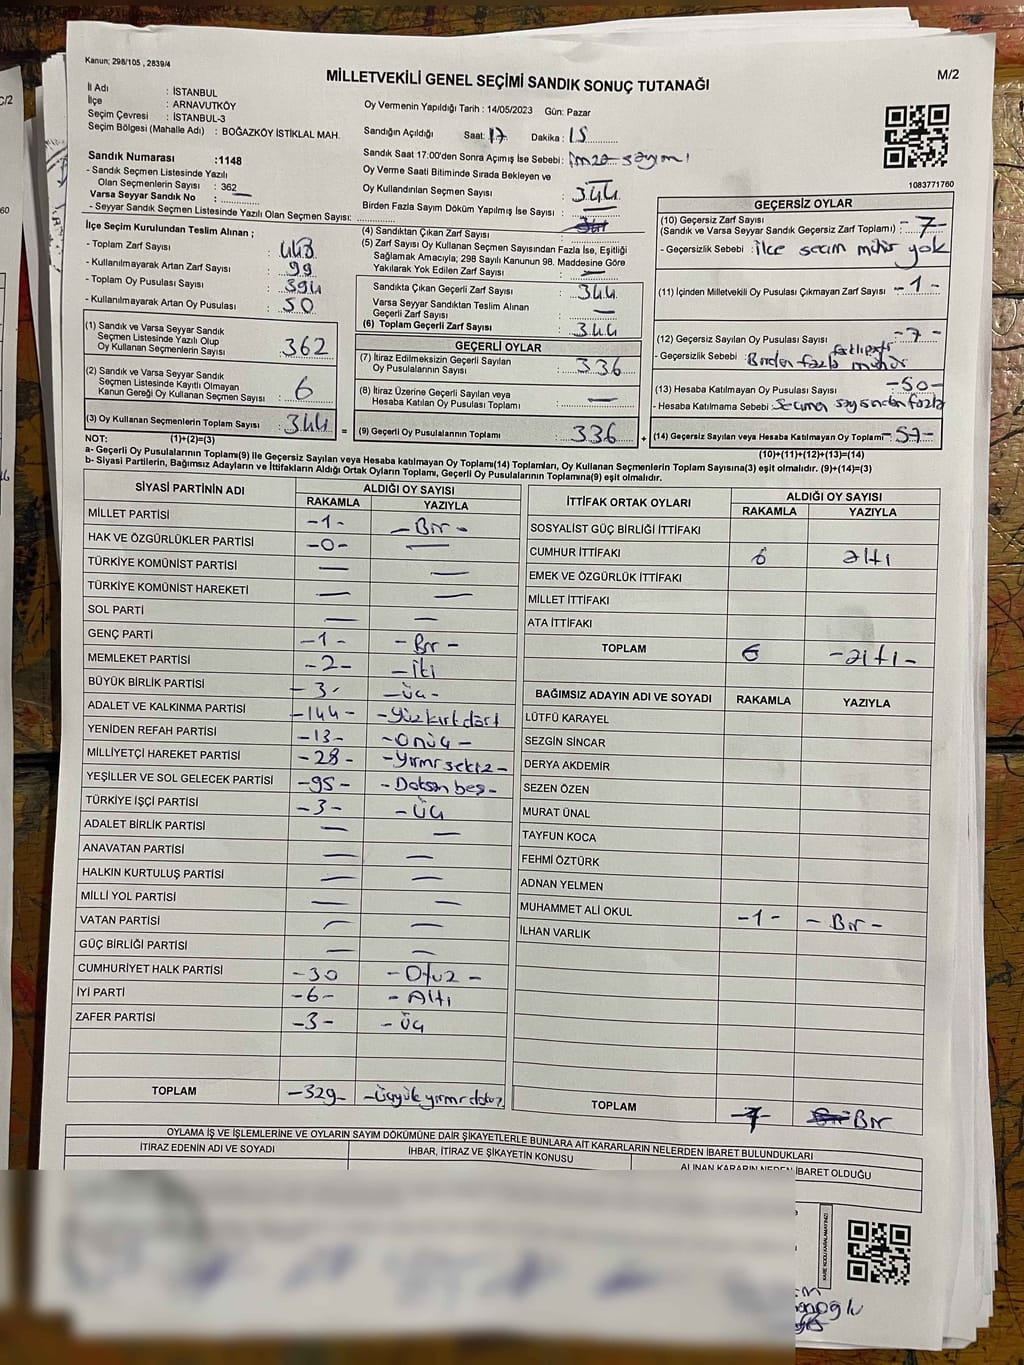 Kanun; 298/105 , 2839/4
M/2
MİLLETVEKİLİ GENEL SEÇİMİ SANDIK SONUÇ TUTANAĞI
İl Adı : İSTANBUL
İlçe : ARNAVUTKÖY
Seçim Çevresi : İSTANBUL-3
Seçim Bölgesi (Mahalle Adı) : BOĞAZKÖY İSTİKLAL MAH.
Oy Vermenin Yapıldığı Tarih : 14/05/2023 Gün: Pazar
Sandığın Açıldığı Saat: 17 Dakika : 15
Sandık Saat 17:00'den Sonra Açımış İse Sebebi: imza sayımı
Oy Verme Saati Bitiminde Sırada Bekleyen ve
Oy Kullandırılan Seçmen Sayısı : 344
Birden Fazla Sayım Döküm Yapılmış İse Sayısı :
1083771760
Sandık Numarası :1148
- Sandık Seçmen Listesinde Yazılı
Olan Seçmenlerin Sayısı : 362
Varsa Seyyar Sandık No :
- Seyyar Sandık Seçmen Listesinde Yazılı Olan Seçmen Sayısı:
İlçe Seçim Kurulundan Teslim Alınan ;
- Toplam Zarf Sayısı : 443
- Kullanılmayarak Artan Zarf Sayısı : 99
- Toplam Oy Pusulası Sayısı : 394
- Kullanılmayarak Artan Oy Pusulası : 50
(1) Sandık ve Varsa Seyyar Sandık
Seçmen Listesinde Yazılı Olup
Oy Kullanan Seçmenlerin Sayısı : 362
(2) Sandık ve Varsa Seyyar Sandık
Seçmen Listesinde Kayıtlı Olmayan
Kanun Gereği Oy Kullanan Seçmen Sayısı : 6
(3) Oy Kullanan Seçmenlerin Toplam Sayısı : 344
(4) Sandıktan Çıkan Zarf Sayısı :
(5) Zarf Sayısı Oy Kullanan Seçmen Sayısından Fazla İse, Eşitliği
Sağlamak Amacıyla; 298 Sayılı Kanunun 98. Maddesine Göre
Yakılarak Yok Edilen Zarf Sayısı : —
Sandıkta Çıkan Geçerli Zarf Sayısı : 344
Varsa Seyyar Sandıktan Teslim Alınan
Geçerli Zarf Sayısı : —
(6) Toplam Geçerli Zarf Sayısı : 344
GEÇERLİ OYLAR
(7) İtiraz Edilmeksizin Geçerli Sayılan
Oy Pusulalarının Sayısı : 336
(8) İtiraz Üzerine Geçerli Sayılan veya
Hesaba Katılan Oy Pusulası Toplamı : —
= (9) Geçerli Oy Pusulalarının Toplamı : 336 +
GEÇERSİZ OYLAR
(10) Geçersiz Zarf Sayısı
(Sandık ve Varsa Seyyar Sandık Geçersiz Zarf Toplamı) : -7-
- Geçersizlik Sebebi : İlce secim mühür yok
(11) İçinden Milletvekili Oy Pusulası Çıkmayan Zarf Sayısı : -1-
(12) Geçersiz Sayılan Oy Pusulası Sayısı : -7-
- Geçersizlik Sebebi : Birden fazla mühür
(13) Hesaba Katılmayan Oy Pusulası Sayısı : -50-
- Hesaba Katılmama Sebebi : Seçmen sayısından fazla
(14) Geçersiz Sayılan veya Hesaba Katılmayan Oy Toplamı : -57-
NOT: (1)+(2)=(3)
(10)+(11)+(12)+(13)=(14)
a- Geçerli Oy Pusulalarının Toplamı(9) İle Geçersiz Sayılan veya Hesaba Katılmayan Oy Toplamı(14) Toplamları, Oy Kullanan Seçmenlerin Toplam Sayısına(3) eşit olmalıdır. (9)+(14)=(3)
b- Siyasi Partilerin, Bağımsız Adayların ve İttifakların Aldığı Ortak Oyların Toplamı, Geçerli Oy Pusulalarının Toplamına(9) eşit olmalıdır.
SİYASİ PARTİNİN ADI ALDIĞI OY SAYISI
RAKAMLA YAZIYLA
MİLLET PARTİSİ -1- -Bir-
HAK VE ÖZGÜRLÜKLER PARTİSİ -0- —
TÜRKİYE KOMÜNİST PARTİSİ — —
TÜRKİYE KOMÜNİST HAREKETİ — —
SOL PARTİ — —
GENÇ PARTİ -1- -Bir-
MEMLEKET PARTİSİ -2- -İki
BÜYÜK BİRLİK PARTİSİ -3- -Üç-
ADALET VE KALKINMA PARTİSİ -144- -Yüzkırkdört
YENİDEN REFAH PARTİSİ -13- -Onüç-
MİLLİYETÇİ HAREKET PARTİSİ -28- -Yirmisekiz-
YEŞİLLER VE SOL GELECEK PARTİSİ -95- -Doksanbeş-
TÜRKİYE İŞÇİ PARTİSİ -3- -Üç
ADALET BİRLİK PARTİSİ — —
ANAVATAN PARTİSİ — —
HALKIN KURTULUŞ PARTİSİ — —
MİLLİ YOL PARTİSİ — —
VATAN PARTİSİ — —
GÜÇ BİRLİĞİ PARTİSİ — —
CUMHURİYET HALK PARTİSİ -30 -Otuz-
İYİ PARTİ -6- -Altı
ZAFER PARTİSİ -3- -Üç
TOPLAM -329- -Üçyüzyirmidokuz
İTTİFAK ORTAK OYLARI ALDIĞI OY SAYISI
RAKAMLA YAZIYLA
SOSYALİST GÜÇ BİRLİĞİ İTTİFAKI
CUMHUR İTTİFAKI 6 altı
EMEK VE ÖZGÜRLÜK İTTİFAKI
MİLLET İTTİFAKI
ATA İTTİFAKI
TOPLAM 6 -altı-
BAĞIMSIZ ADAYIN ADI VE SOYADI RAKAMLA YAZIYLA
LÜTFÜ KARAYEL
SEZGİN SİNCAR
DERYA AKDEMİR
SEZEN ÖZEN
MURAT ÜNAL
TAYFUN KOCA
FEHMİ ÖZTÜRK
ADNAN YELMEN
MUHAMMET ALİ OKUL -1- -Bir-
İLHAN VARLIK
TOPLAM Bir
OYLAMA İŞ VE İŞLEMLERİNE VE OYLARIN SAYIM DÖKÜMÜNE DAİR ŞİKAYETLERLE BUNLARA AİT KARARLARIN NELERDEN İBARET BULUNDUKLARI
İTİRAZ EDENİN ADI VE SOYADI İHBAR, İTİRAZ VE ŞİKAYETİN KONUSU ALINAN KARARIN NEDEN İBARET OLDUĞU
KARE KODU KARALAMAYINIZ!